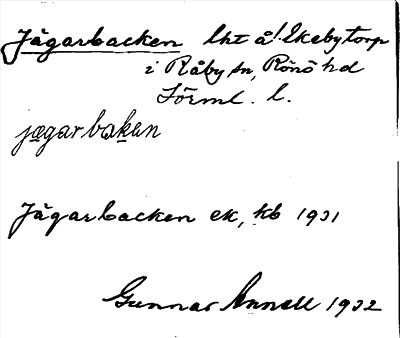 Jägarbacken lht å! Ekebytorp
i Råby sn, Rönö hd
Sörml. l.
jægarbaken
Jägarbacken ek, kb 1931
Gunnar Annell 1932